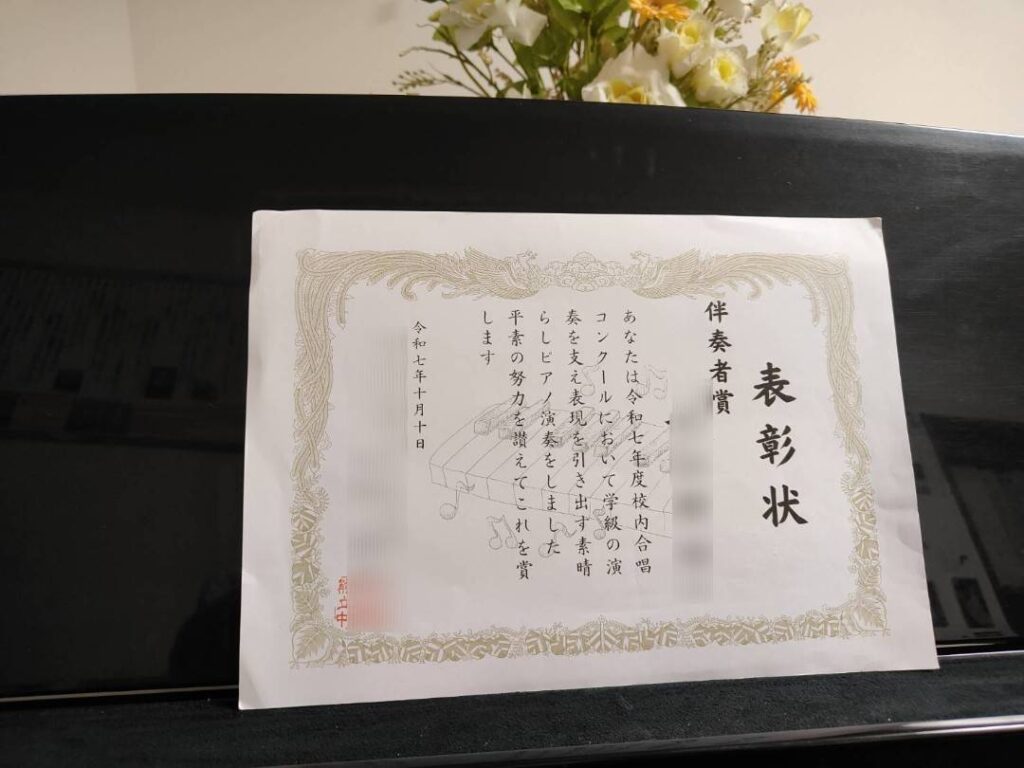 表彰状
伴奏者賞
あなたは令和七年度校内合唱
コンクールにおいて学級の演
奏を支え表現を引き出す素晴
らしピアノ演奏をしました
平素の努力を讃えてこれを賞
します
令和七年十月十日